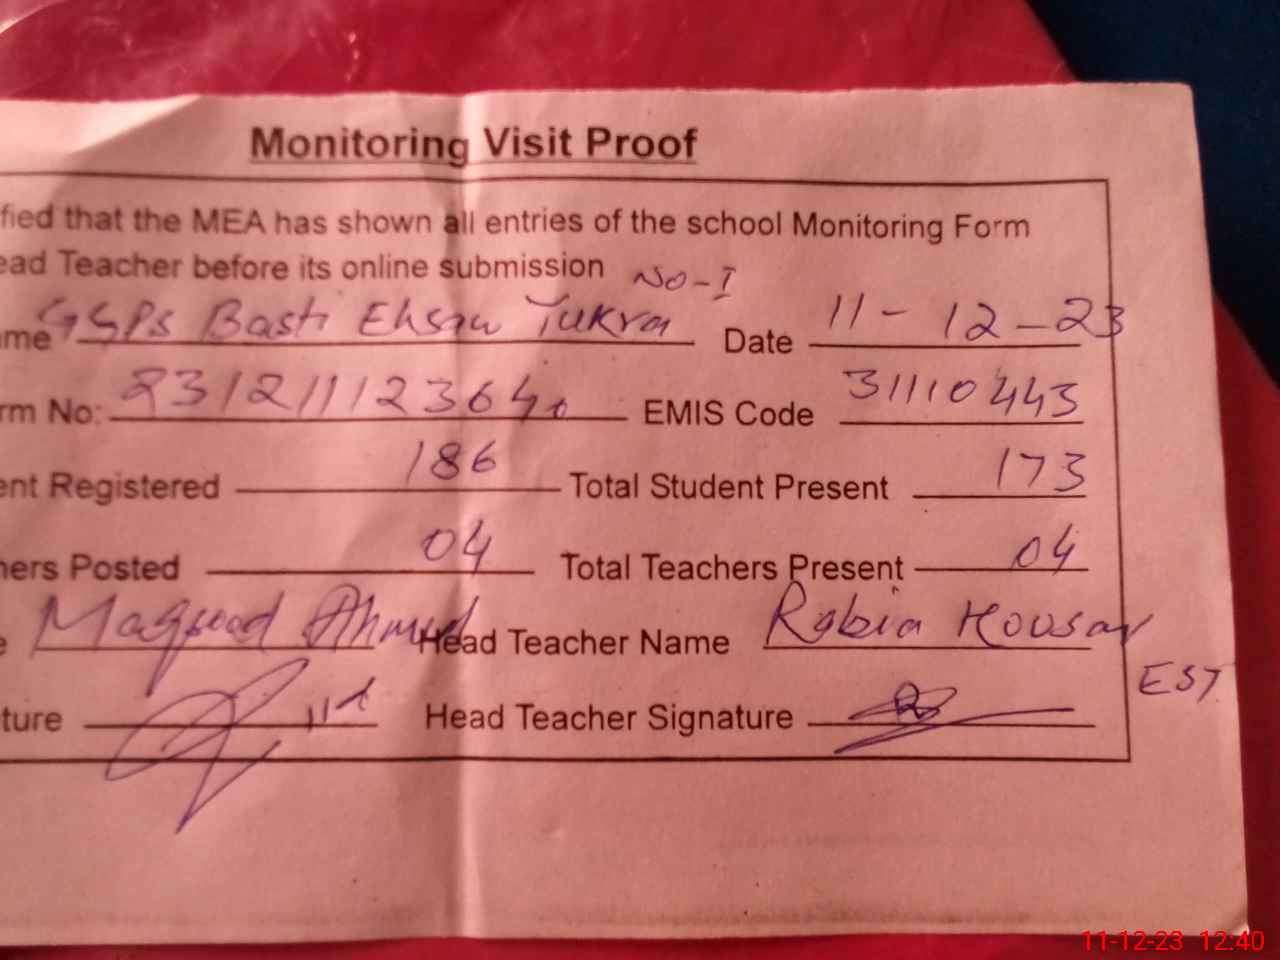 Monitoring Visit Proof
fied that the MEA has shown all entries of the school Monitoring Form
ead Teacher before its online submission No-I
ame GGPS Basti Ehsan Tukra Date 11-12-23
rm No: EMIS Code 31110443
ent Registered 186 Total Student Present 173
hers Posted 04 Total Teachers Present 04
e Maqsood Ahmed Head Teacher Name Rabia
EST
ture Head Teacher Signature
11-12-23 12:40